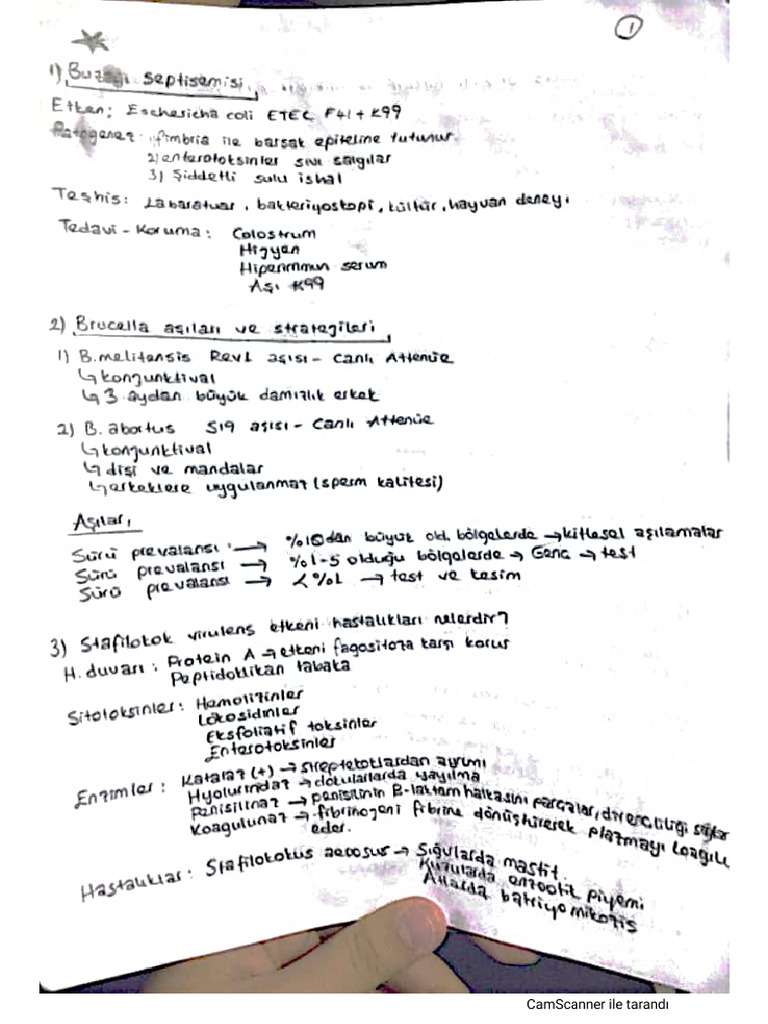 1
1) Buzağı septisemisi
Etken; Eschericha coli ETEC F41 + K99
Patogenez: fimbria ile barsak epiteline tutunur.
2) enterotoksinler sıvı salgılar
3) Şiddetli sulu ishal
Teşhis: Labaratuar, bakteriyostopi, kültür, hayvan deneyi
Tedavi - Koruma: Colostrum
Higyen
Hiperimmun serum
Aşı K99
2) Brucella aşıları ve stratejileri
1) B.melitensis Rev1 aşısı - Canlı Attenüe
↳ konjunktival
↳ 3 aydan büyük damızlık erkek
2) B. abortus S19 aşısı - Canlı Attenüe
↳ konjunktival
↳ dişi ve mandalar
↳ erkeklere uygulanmaz (sperm kalitesi)
Aşılar,
Sürü prevalansı → %10dan büyük old. bölgelerde → kitlesel aşılamalar
Sürü prevalansı → %1-5 olduğu bölgelerde → Genc → test
Sürü prevalansı → < %1 → test ve kesim
3) Stafilokok virulens etkeni hastalıkları nelerdir?
H. duvarı: Protein A → etkeni fagositoza karşı korur
Peptidoklikan tabaka
Sitotoksinler: Hemolizinler
Lökosidinler
Eksfoliatif toksinler
Enterotoksinler
Enzimler: Katalaz (+) → streptetotlardan ayrımı
Hyolurindaz → dokularlarda yayılma
Penisilinaz → penisilinin B-laktam halkasını parcalar, direnc liliği sağlar
Koagulunaz → fibrinogeni fibrine dönüştürerek plazmayı koagüle
eder.
Hastalıklar: Stafilokokus aerosur → Sığırlarda mastit.
Kuzularda enzootik piyemi
Atlarda batriyomikozis
CamScanner ile tarandı